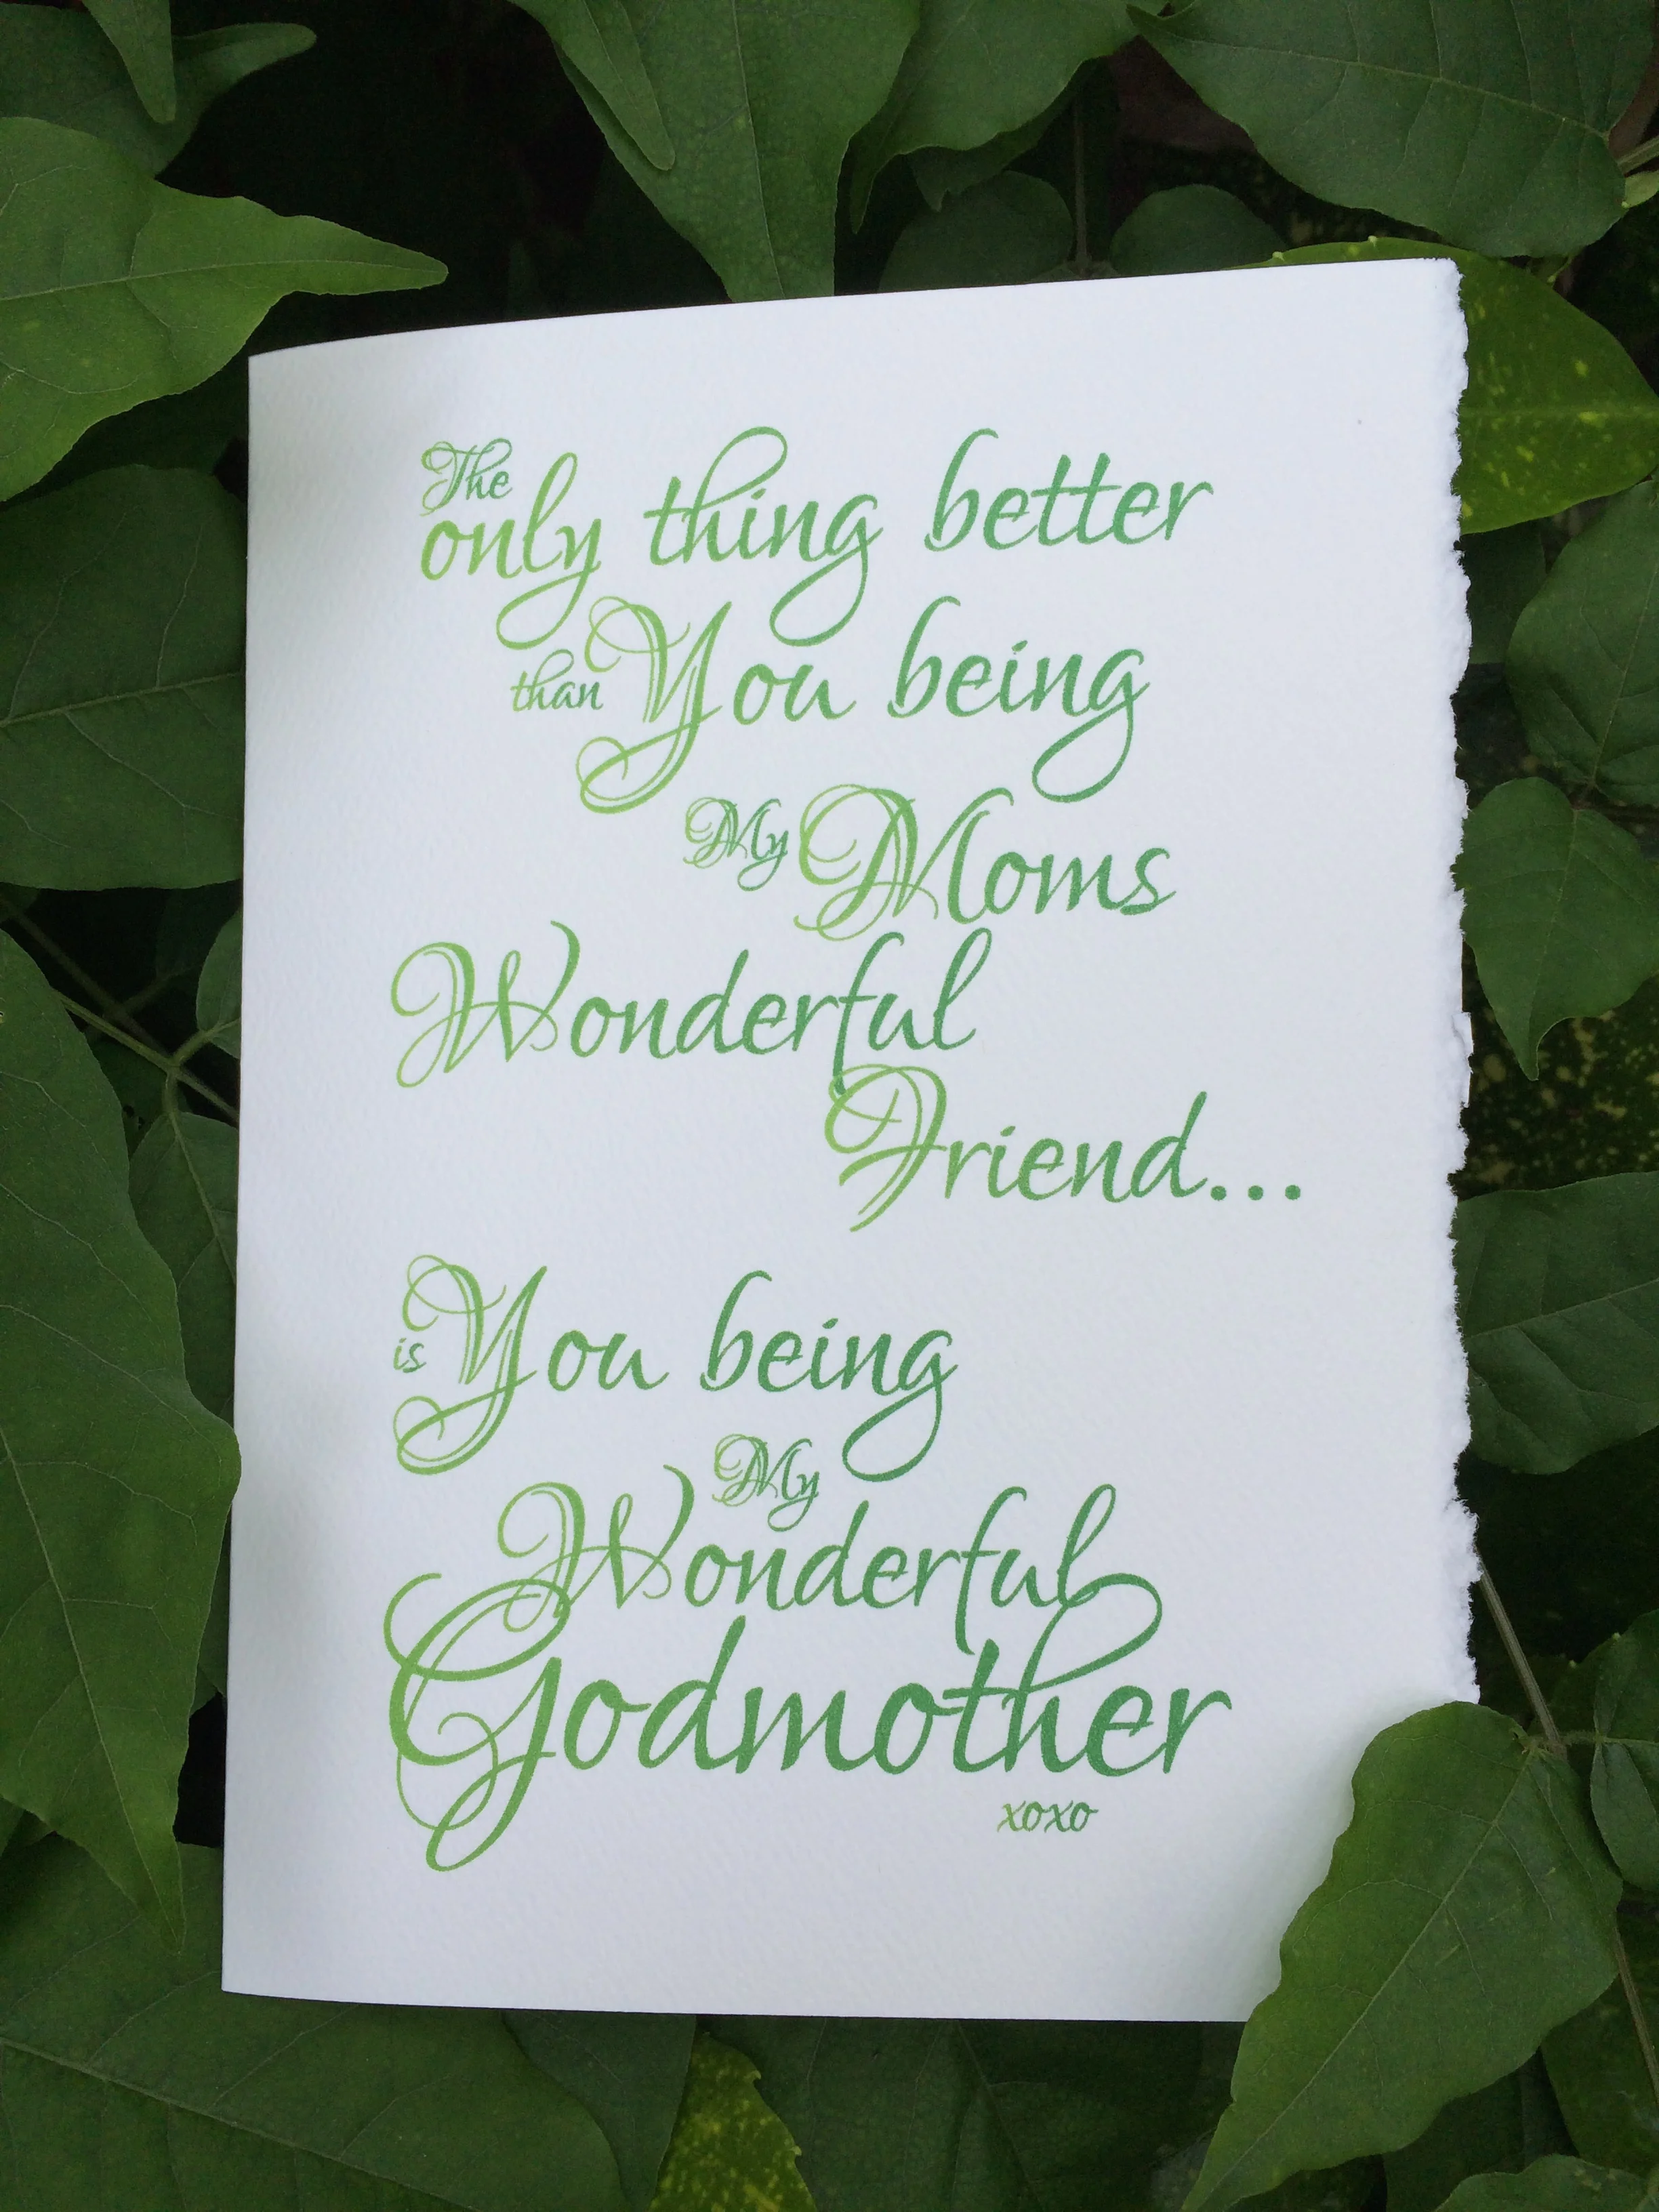 The
only thing better
than You being
My Moms
Wonderful
Friend...
is You being
My
Wonderful
Godmother
xoxo